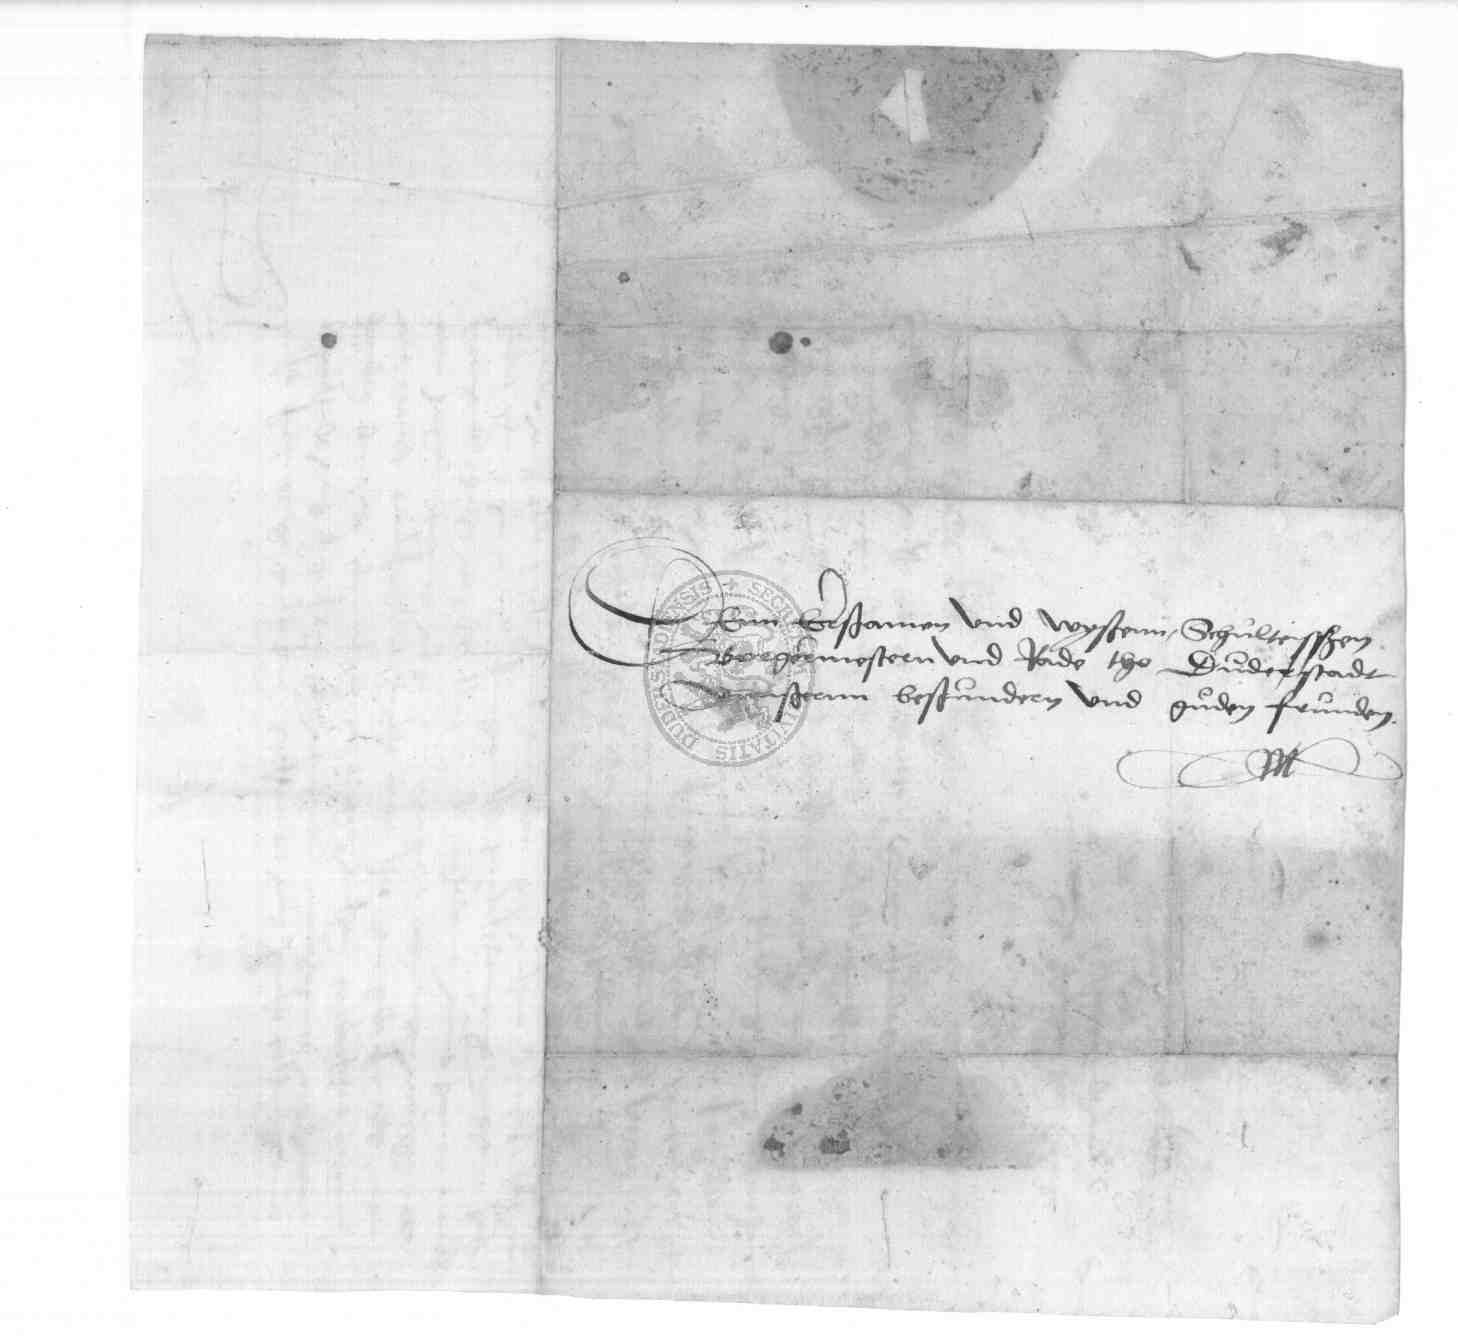 Denn Ersamen vnd wysenn, Schulteisszen
Borgermestern vnd Rade tho Duderstadt
vnsernn besundern vnd guden frunden.
SECR CIVITATIS DUDERSTADENSIS